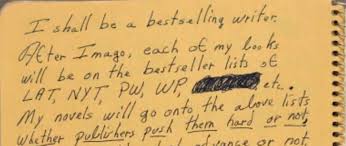 I shall be a bestselling writer.
After Imago, each of my books
will be on the bestseller lists of
LAT, NYT, PW, WP, etc.
My novels will go onto the above lists
whether publishers push them hard or not,
advance or not